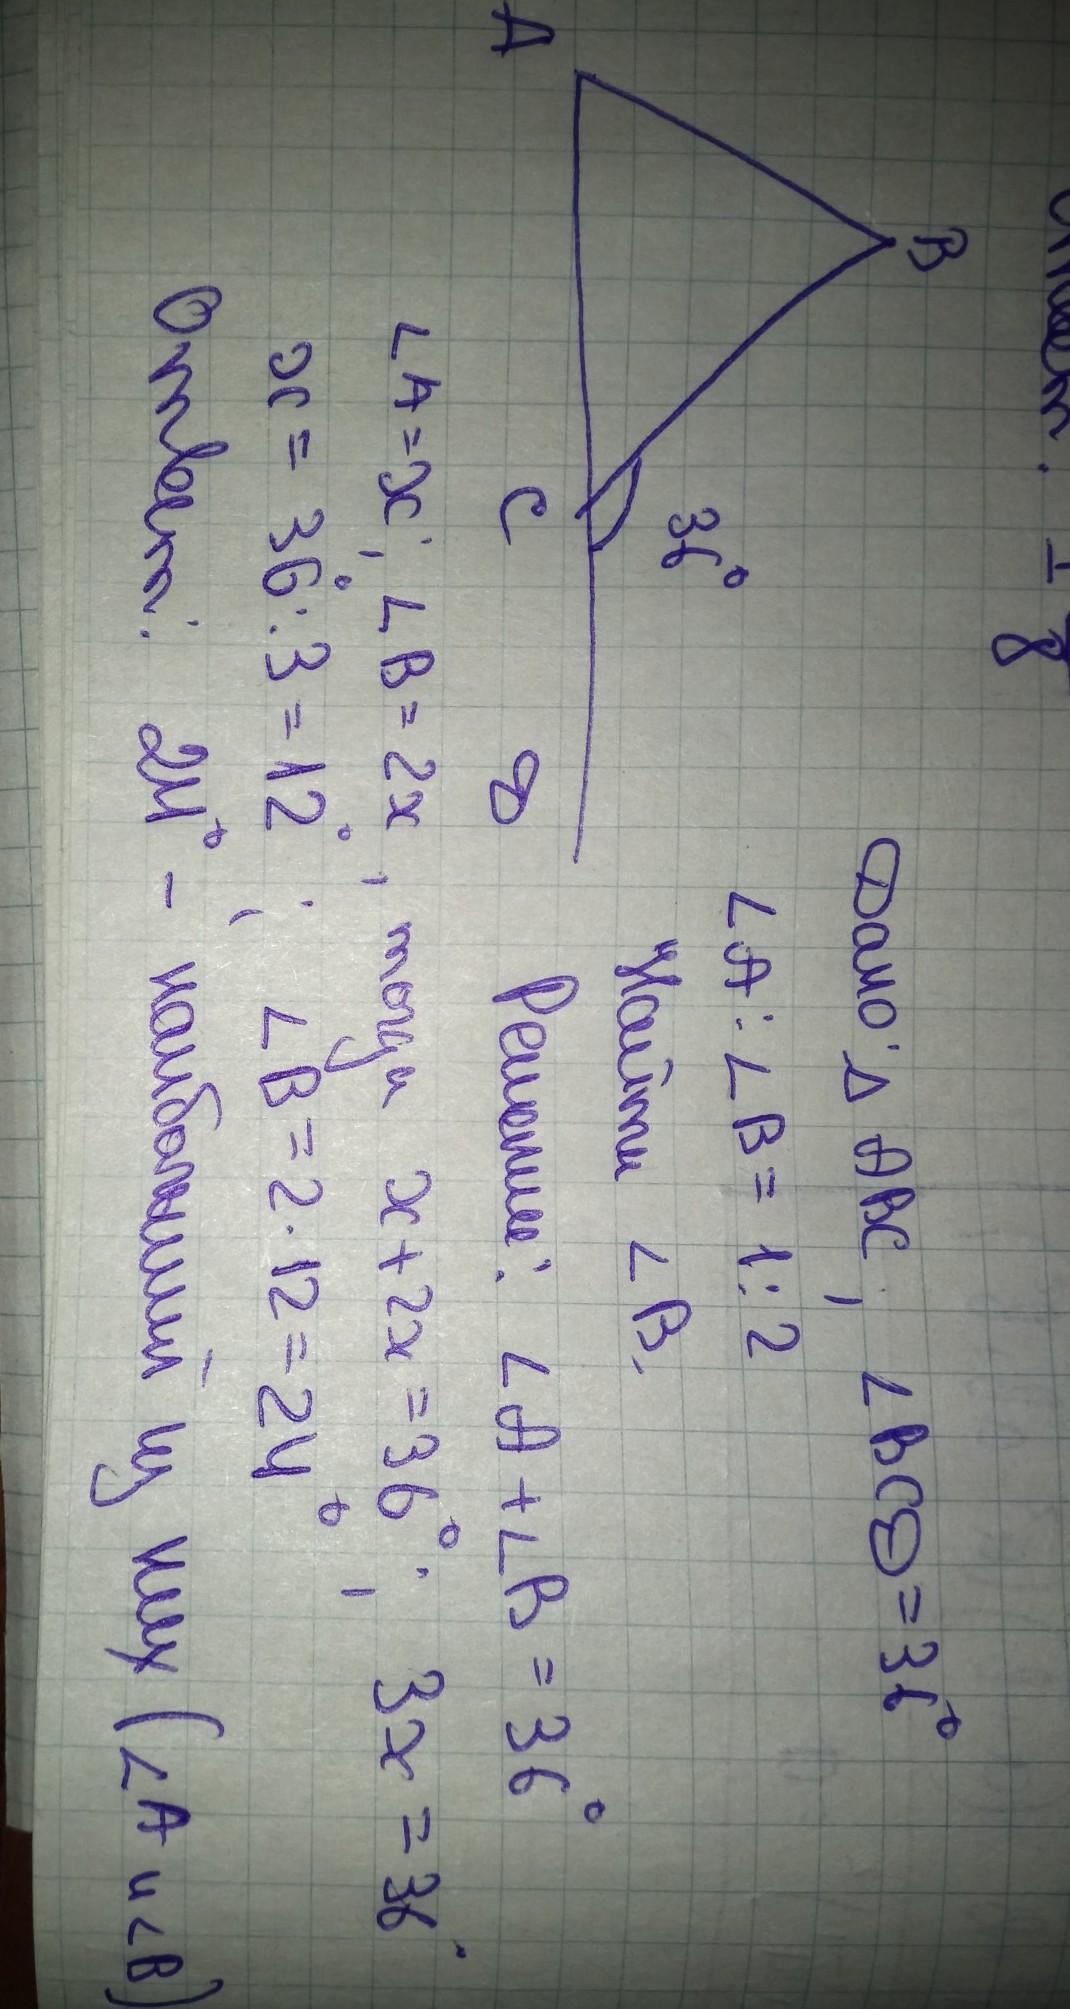 Ответ. 1/8
B
36°
A
C
D
Дано: Δ ABC, ∠BCD = 36°
∠A : ∠B = 1 : 2
Найти ∠B.
Решение: ∠A + ∠B = 36°
∠A = x; ∠B = 2x, тогда x + 2x = 36°; 3x = 36°
x = 36° : 3 = 12°; ∠B = 2 · 12 = 24°,
Ответ: 24° - наибольший из них (∠A и ∠B)